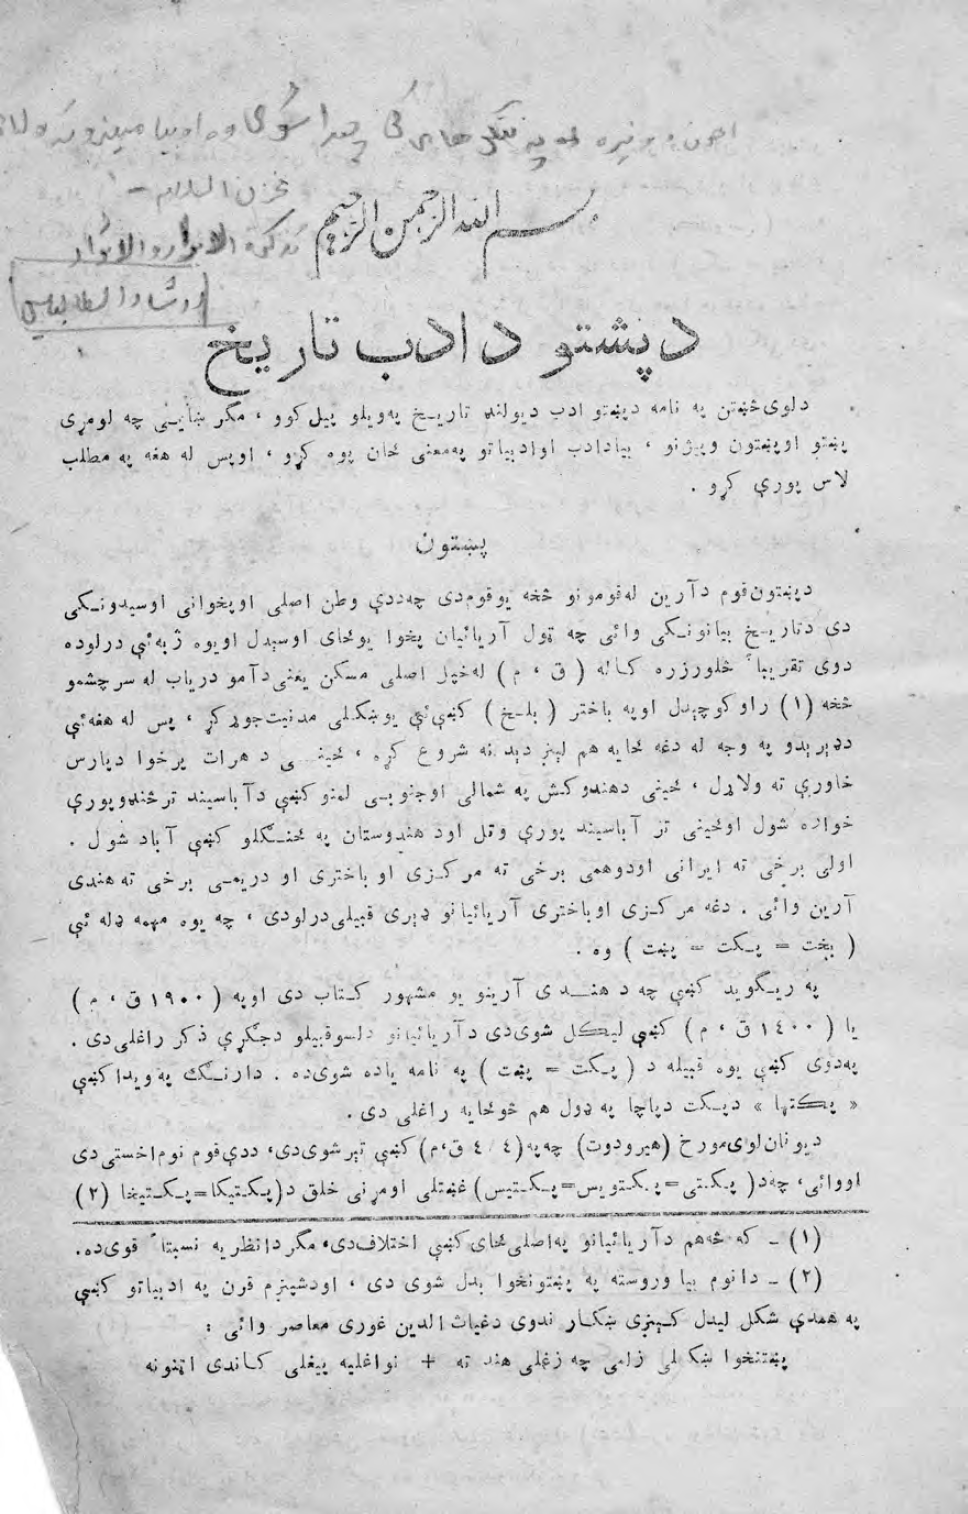 مخزن السلام -
تذکرة الابرار و الاشرار
ارشاد الطالبین
بسم الله الرحمن الرحیم
د پشتو د ادب تاریخ
دلوی څښتن په نامه دپښتو ادب دیولنډ تاریـخ په‌ویلو پیل کوو ، مگر ښائیـئی چه لومړی
پښتو اوپښتون وپیژنو ، بیادادب اوادبیاتو په‌معنی ځان پوه کړو ، اوپس له هغه په مطلب
لاس پوری کړو .
پښتون
دپښتون‌قوم دآرین له‌قومونو څخه یوقوم‌دی چه‌ددې وطن اصلی اوپخوانی اوسیدونـکی
دی دتاریـخ بیانونـکی وائی چه ټول آریائیان پخوا یوځای اوسېدل اویوه ژبه‌ئې درلوده
دوی تقریباً څلورزره کـاله ( ق ، م ) له‌خپل اصلی مسکن یعنی‌دآمو دریاب له سرچشمو
څخه (۱) راوکوچېدل اوپه باختر ( بلـخ ) کښې‌ئې یوښکـلی مدنیت‌جوړکړ ، پس له هغه‌ئې
دډېرېدو په وجه له دغه ځایه هم لېږدېدنه شروع کړه ، ځینــی د هرات پرخوا دپارس
خاورې ته ولاړل ، ځینی دهندوکـش په شمالی اوجنوبـی لمنو کښې دآباسیند ترڅنډوپورې
خواره شول اوځینی تر آباسیند پورې وتل اود هندوستان په ځنـګلو کښې آباد شول .
اولی برخې ته ایرانی اودوهمی برخی ته مرکـزی او باختری او دریمـی برخی ته هندی
آرین وائی . دغه مرکـزی اوباختری آریائیانو ډېری قبیلی‌درلودی ، چه یوه مهمه ډله ئې
( بخت = پـکت = پښت ) وه .
په ریـگوید کښې چه د هنــدی آرینو یو مشهور کـتاب دی اوپه ( ۱۹۰۰ ق ، م )
یا ( ۱٤۰۰ ق ، م ) کښې لیـکل شوی‌دی دآریائیانو دلسوقبیلو دجګړې ذکر راغلی‌دی .
په‌دوی کښې یوه قبیله د ( پـکت = پښت ) په نامه یاده شوی‌ده . دارنــګك په‌ویداکښې
« پـکتها » دپـکت دپاچا په ډول هم څوځایه راغلی دی .
دیونان‌لوی‌مورخ (هیرودوت) چه‌په( ق،م) کښې تېرشوی‌دی، ددې‌قوم نوم‌اخستی‌دی
اووائی، چه‌د( پـکـتی=پـکـتویس=پـکـتیس) غښتلی اومړنی خلق د(پـکـتیکا=پـکـتیخا (۲)
(۱) ـ که څه‌هم دآریائیانو په‌اصلی‌ځای‌کښې اختلاف‌دی، مگر دانظریه نسبتاً قوی‌ده.
(۲) ـ دانوم بیا وروسته په پښتونخوا بدل شوی دی ، اودشپږم قرن په ادبیاتو کښې
په همدې شکل لیدل کـېږی ښکـارندوی دغیاث‌الدین غوری معاصر وائی :
پښتنخوا ښکـلی زلمی چه زغلی هند ته + نواغلیه پیغلی کـاندی اتڼونه